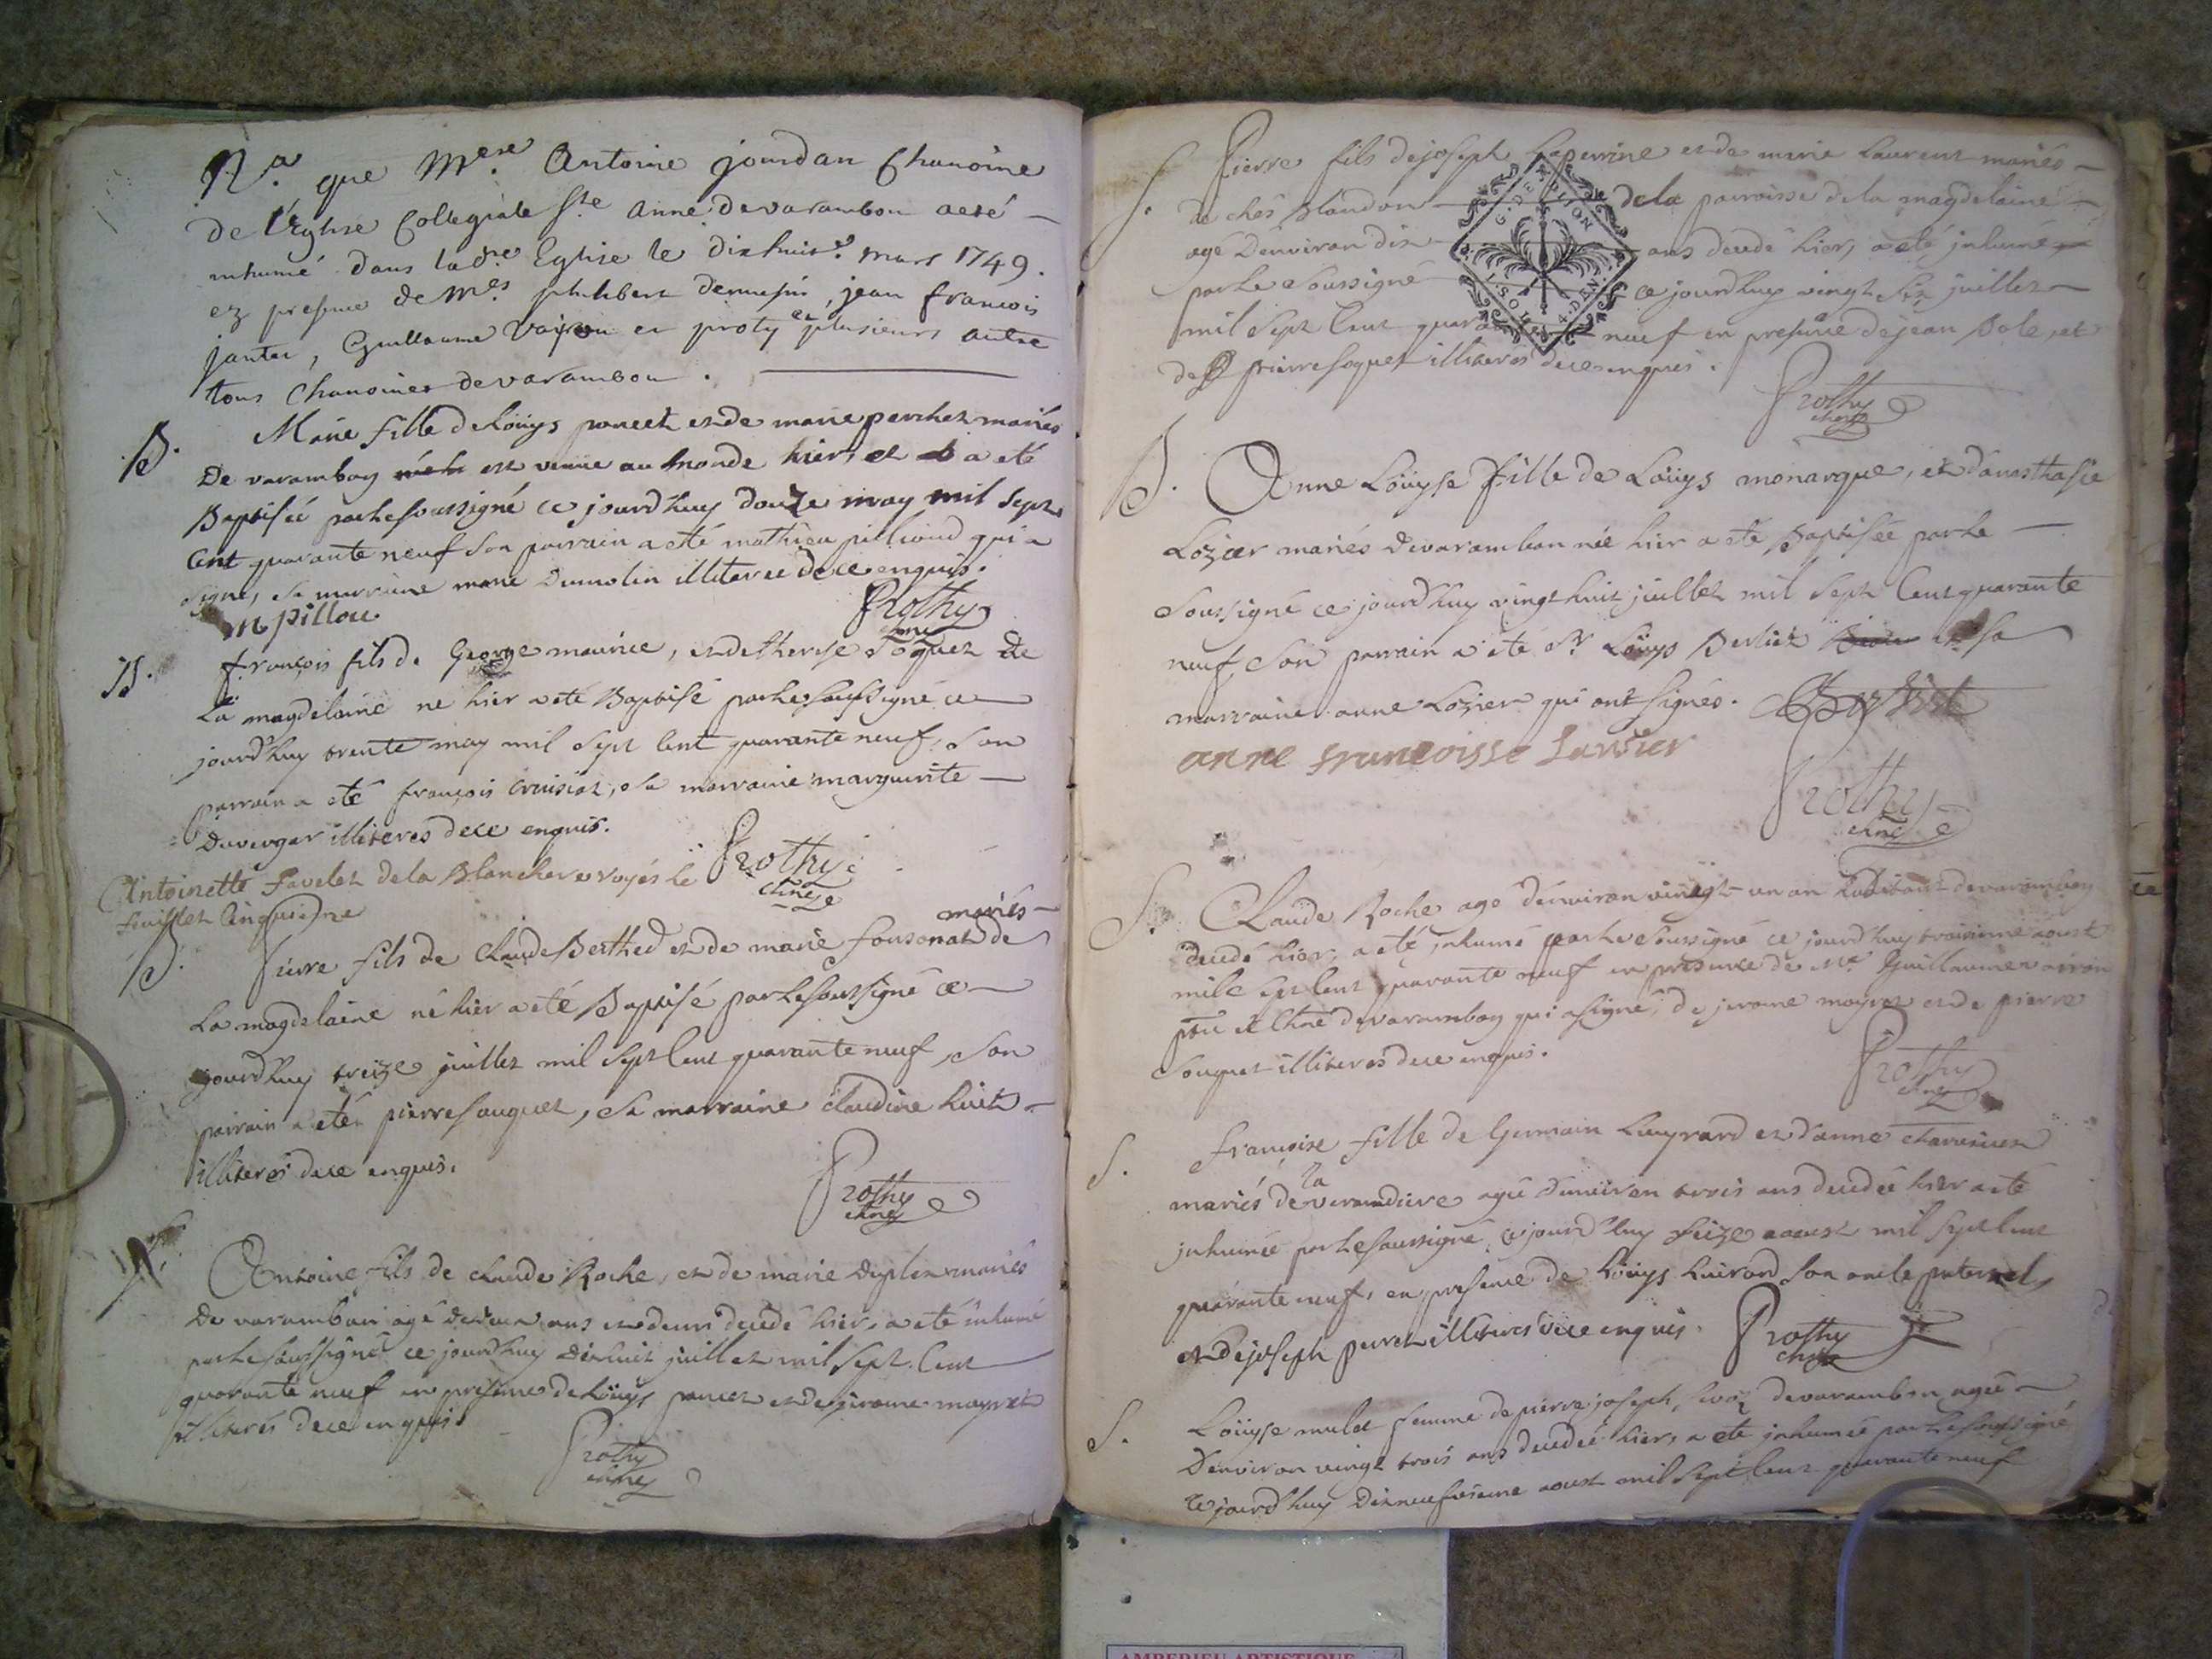 Na. que Mere Antoine jourdan Chanoine
de l'Eglise Collegiale Ste anne devarambon aeté
inhumé dans ladre Eglise le dixhuit mars 1749.
ez presence de Mes philibert, jean francois
jantet, Guillaume et proty et plusieurs autre
tous Chanoines devarambon.
B. Marie fille de Loüys poncet et de marie perchet mariés
De varambon est venüe au monde hier, et a eté
Baptisée par le soussigné ce jourd'huy douze may mil sept
Cent quarante neuf son parrain a eté mathieu pillioud qui a
signé, sa marraine marie Dumolin illiterée de ce enquis.
m pillou Prothy
chne
B. françois fils de George maurice, et de therese soquet de
La magdelaine né hier a eté Baptisé par le soussigné ce
jourd'huy trente may mil sept Cent quarante neuf, son
parrain a eté françois, sa marraine marguerite
Duvergar illiterés de ce enquis.
Prothy
chne
Antoinette favelet dela Blancher voyés le
fuillet Cinquieme
mariés
B. Pierre fils de Claude Berthed et de marie fonsonat de
La magdelaine né hier a eté Baptisé par le soussigné ce
jourd'huy treize juillet mil sept Cent quarante neuf, son
parrain a eté pierre souquet, sa marraine claudine huit
illiterés de ce enquis.
Prothy
chne
S. Antoine fils de claude Roche, et de marie Duplex mariés
De varambon agé de deux ans et demi decedé hier, a eté inhumé
par le soussigné ce jourd'huy dixhuit juillet mil sept Cent
quarante neuf en presence de Loüys poncet et de jirome mayret
illiterés de ce enquis.
Prothy
chne
S. Pierre fils de joseph Laperrine et de marie Laurent mariés
de chés Blandon dela parroisse de la magdelaine
agé d'environ dix ans decedé hier, a eté inhumé
par le soussigné ce jourd'huy vingt six juillet
mil sept Cent quarante neuf en presence de jean Bole, et
de pierre soquet illiterés de ce enquis.
G. DE DIJON
SOLS 4. DEN
Prothy
chne
B. Anne Loüyse fille de Loüys monarque, et d'anasthasie
Lozier mariés de varambon née hier a eté Baptisée par le
soussigné ce jourd'huy vingt huit juillet mil sept Cent quarante
neuf, son parrain a eté Sr Loüys Berliet et sa
marraine anne Lozier qui ont signés. Berliet
anne francoisse
Prothy
chne
S. Claude Roche agé d'environ vingt un an habitant devarambon
decedé hier, a eté inhumé par le soussigné ce jourd'huy troisieme aoust
mil sept Cent quarante neuf en presence de Mre Guillaume
ptre et Chne devarambon qui a signé, de jerome mayret et de pierre
Souquet illiterés de ce enquis.
Prothy
chne
S. françoise fille de Germain Luyrard et d'anne
mariés de la agée d'environ trois ans decedée hier a eté
inhumée par le soussigné ce jourd'huy seize aoust mil sept Cent
quarante neuf, en presence de Loüys Luirard son oncle paternel,
et de joseph perret illiterés de ce enquis. Prothy
chne
S. Loüyse mulet femme de pierre joseph devarambon agée
D'environ vingt trois ans decedée hier, a eté inhumée par le soussigné
ce jourd'huy dixneufvieme aoust mil sept Cent quarante neuf
AMBERIEU ARTISTIQUE